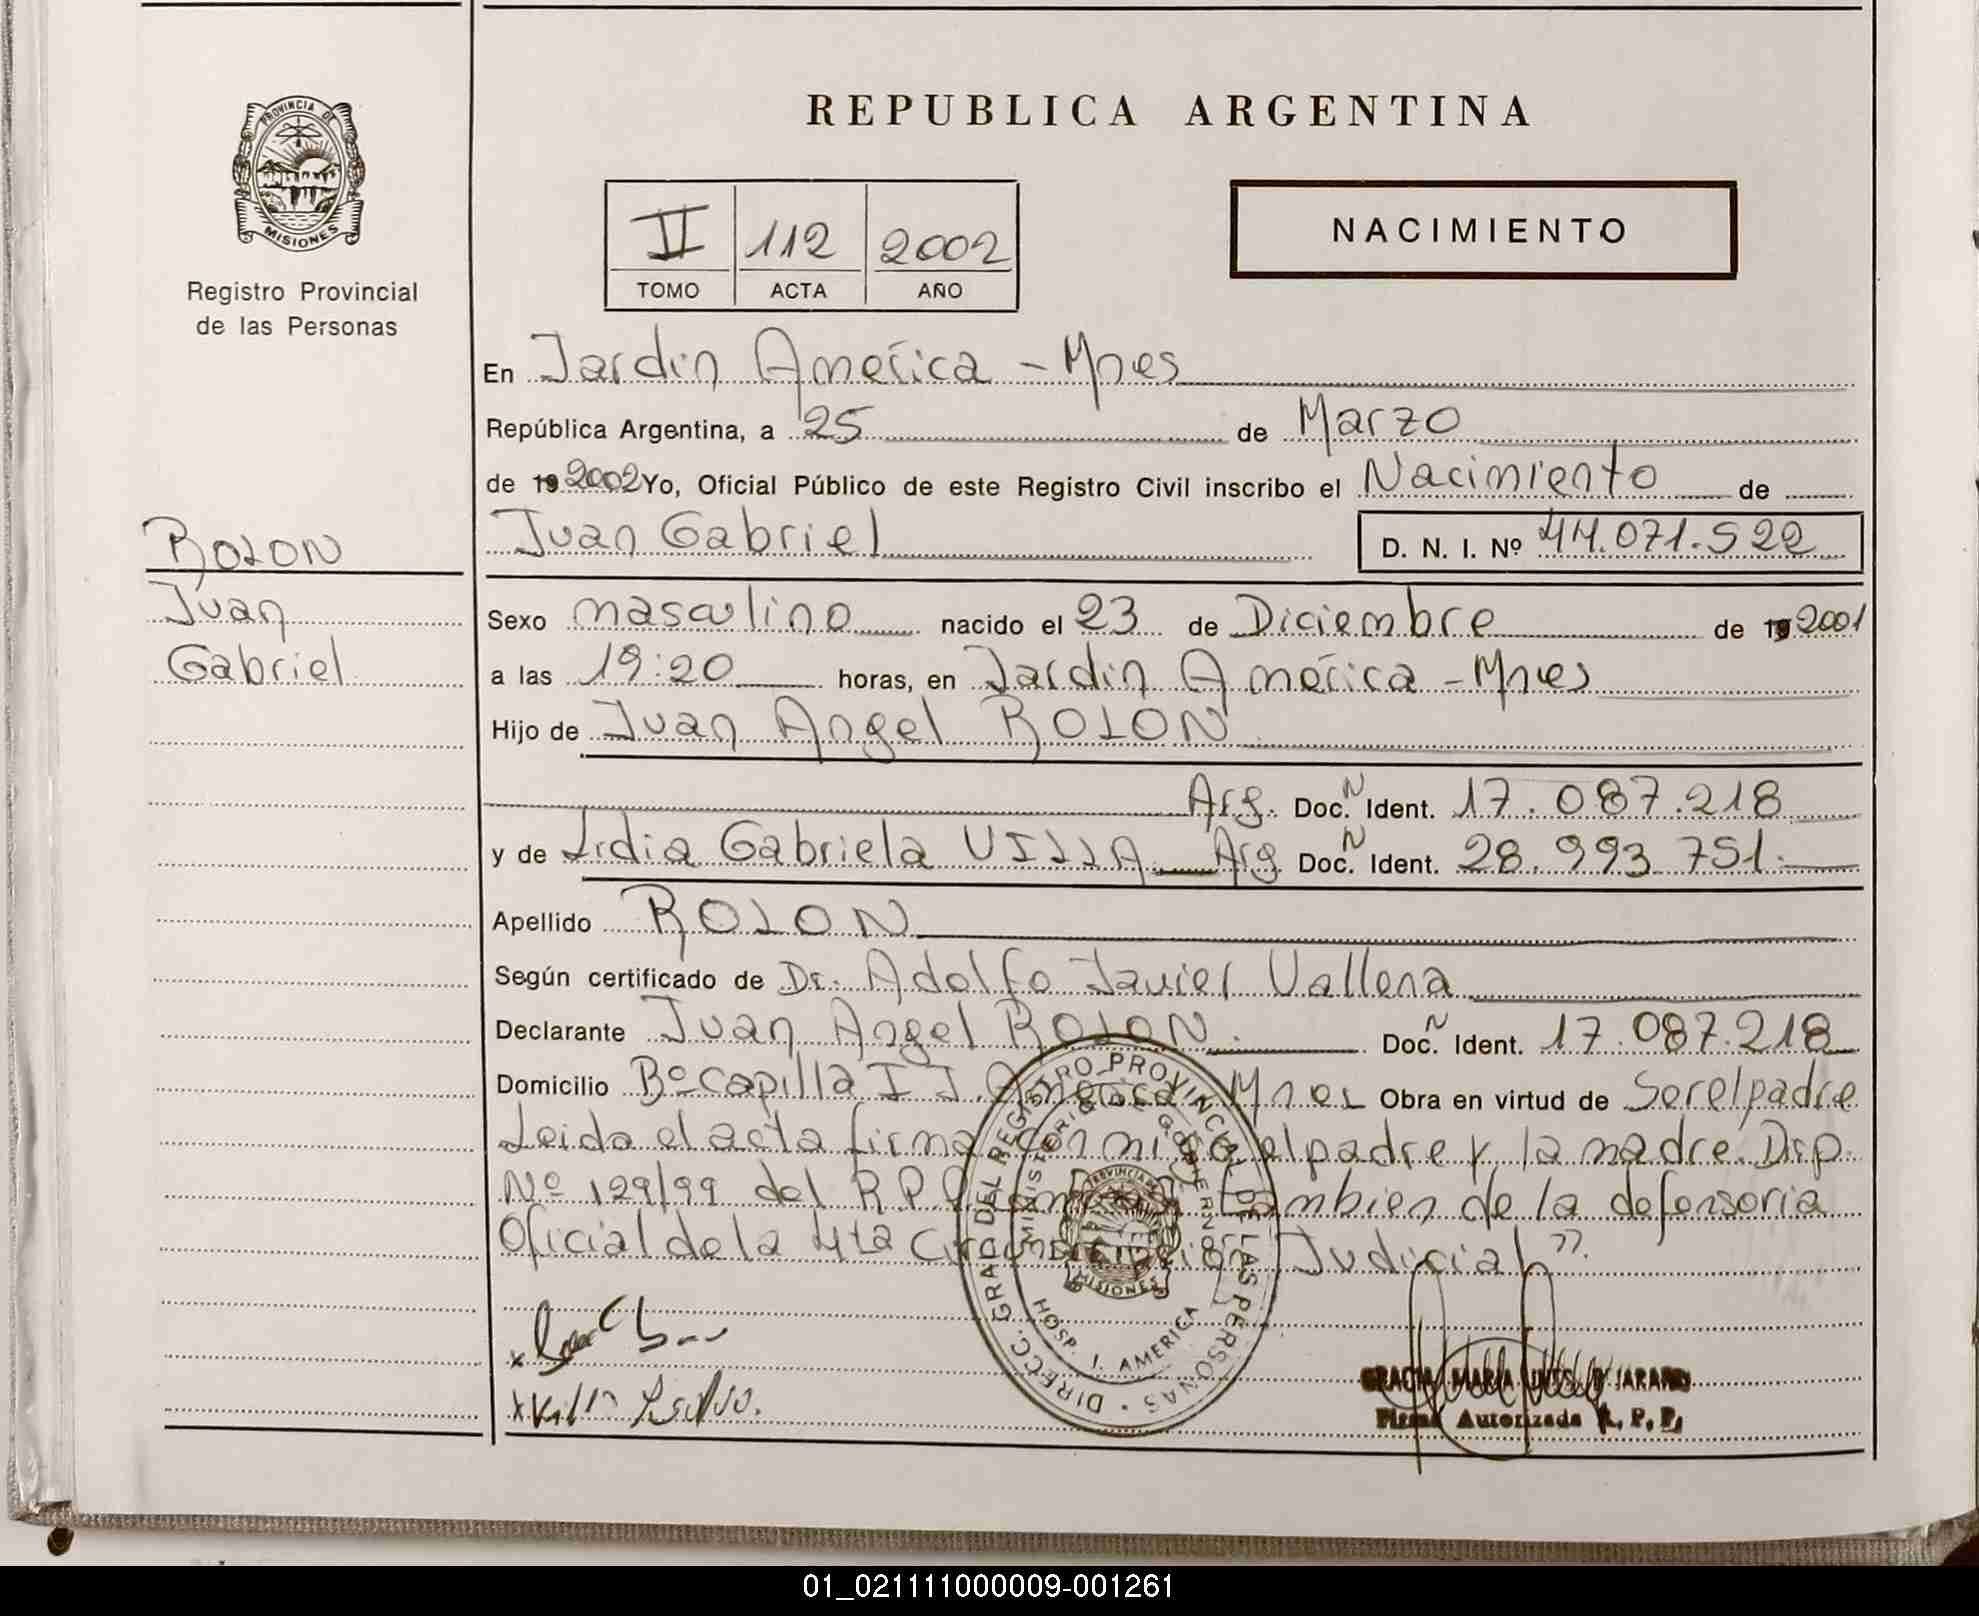 REPUBLICA ARGENTINA
PROVINCIA DE
MISIONES
Registro Provincial
de las Personas
II 112 2002
TOMO ACTA AÑO
NACIMIENTO
En Jardin América - Mnes
República Argentina, a 25 de Marzo
de 19 2002 Yo, Oficial Público de este Registro Civil inscribo el Nacimiento de
Juan Gabriel D. N. I. Nº 44.071.522
ROLON
Juan
Gabriel
Sexo masculino nacido el 23 de Diciembre de 19 2001
a las 19:20 horas, en Jardin América - Mnes
Hijo de Juan Angel ROLON
Arg. Doc. N Ident. 17.087.218
y de Lidia Gabriela VILLA Arg Doc. N Ident. 28.993.751.
Apellido ROLON
Según certificado de Dr. Adolfo Javier Vallena
Declarante Juan Angel ROLON. Doc. N Ident. 17.087.218
Domicilio Bº Capilla I J. América Mnes Obra en virtud de Ser el padre
Leida el acta firma con mi go el padre y la madre. Disp.
Nº 129/99 del R.P.P. como así tambien de la defensoria
Oficial de la 4ta Circunscripcion Judicial".
DIRECC. GRAL. DEL REGISTRO PROVINCIAL DE LAS PERSONAS
MINISTERIO DE GOBIERNO
PROVINCIA DE
MISIONES
HOSP. J. AMERICA
Firma Autorizada R. P. P.
01_021111000009-001261